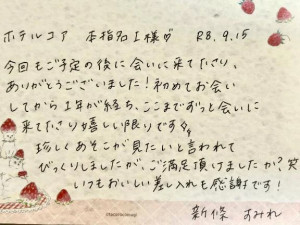 ホテルコア 本指名I様♡ R8.9.15
今回もご予定の後に会いに来てたさり、
ありがとうございました!初めてお会い
してから1年が経ち、ここまでずっと会いに
来てたさり嬉しい限りです
珍しくあそこが見たいと言われて
びっくりしましたが、ご満足頂けましたか?笑
いつもおいしい差し入れも感謝です!
新條 すみれ